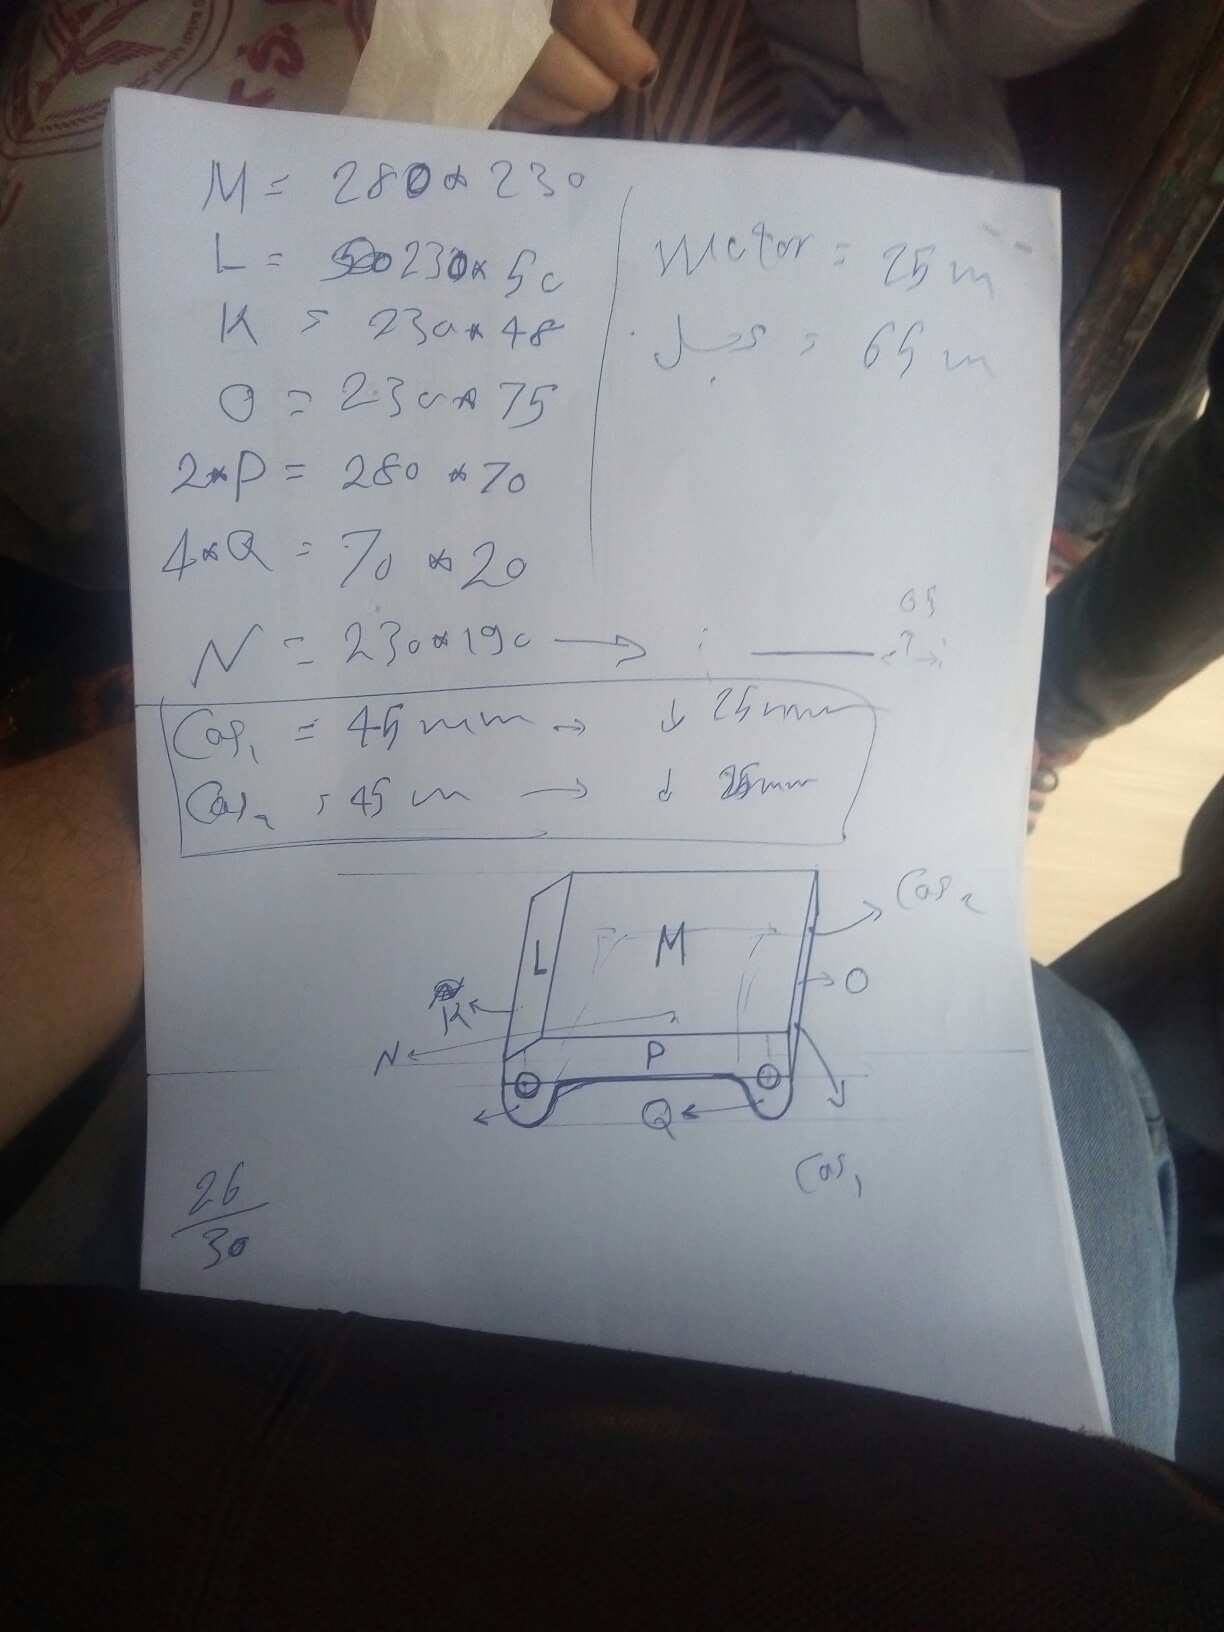 M = 280 * 230
L = 230 * 50
K = 230 * 48
O = 230 * 75
2*P = 280 * 70
4*Q = 70 * 20
N = 230 * 190 →
Motor = 25 m
= 65 m
05
?
Cas1 = 45 mm → ↓ 25 mm
Cas2 = 45 m → ↓ 25 mm
Cas2
L
M
O
K
N
P
Q
Cas1
26
30